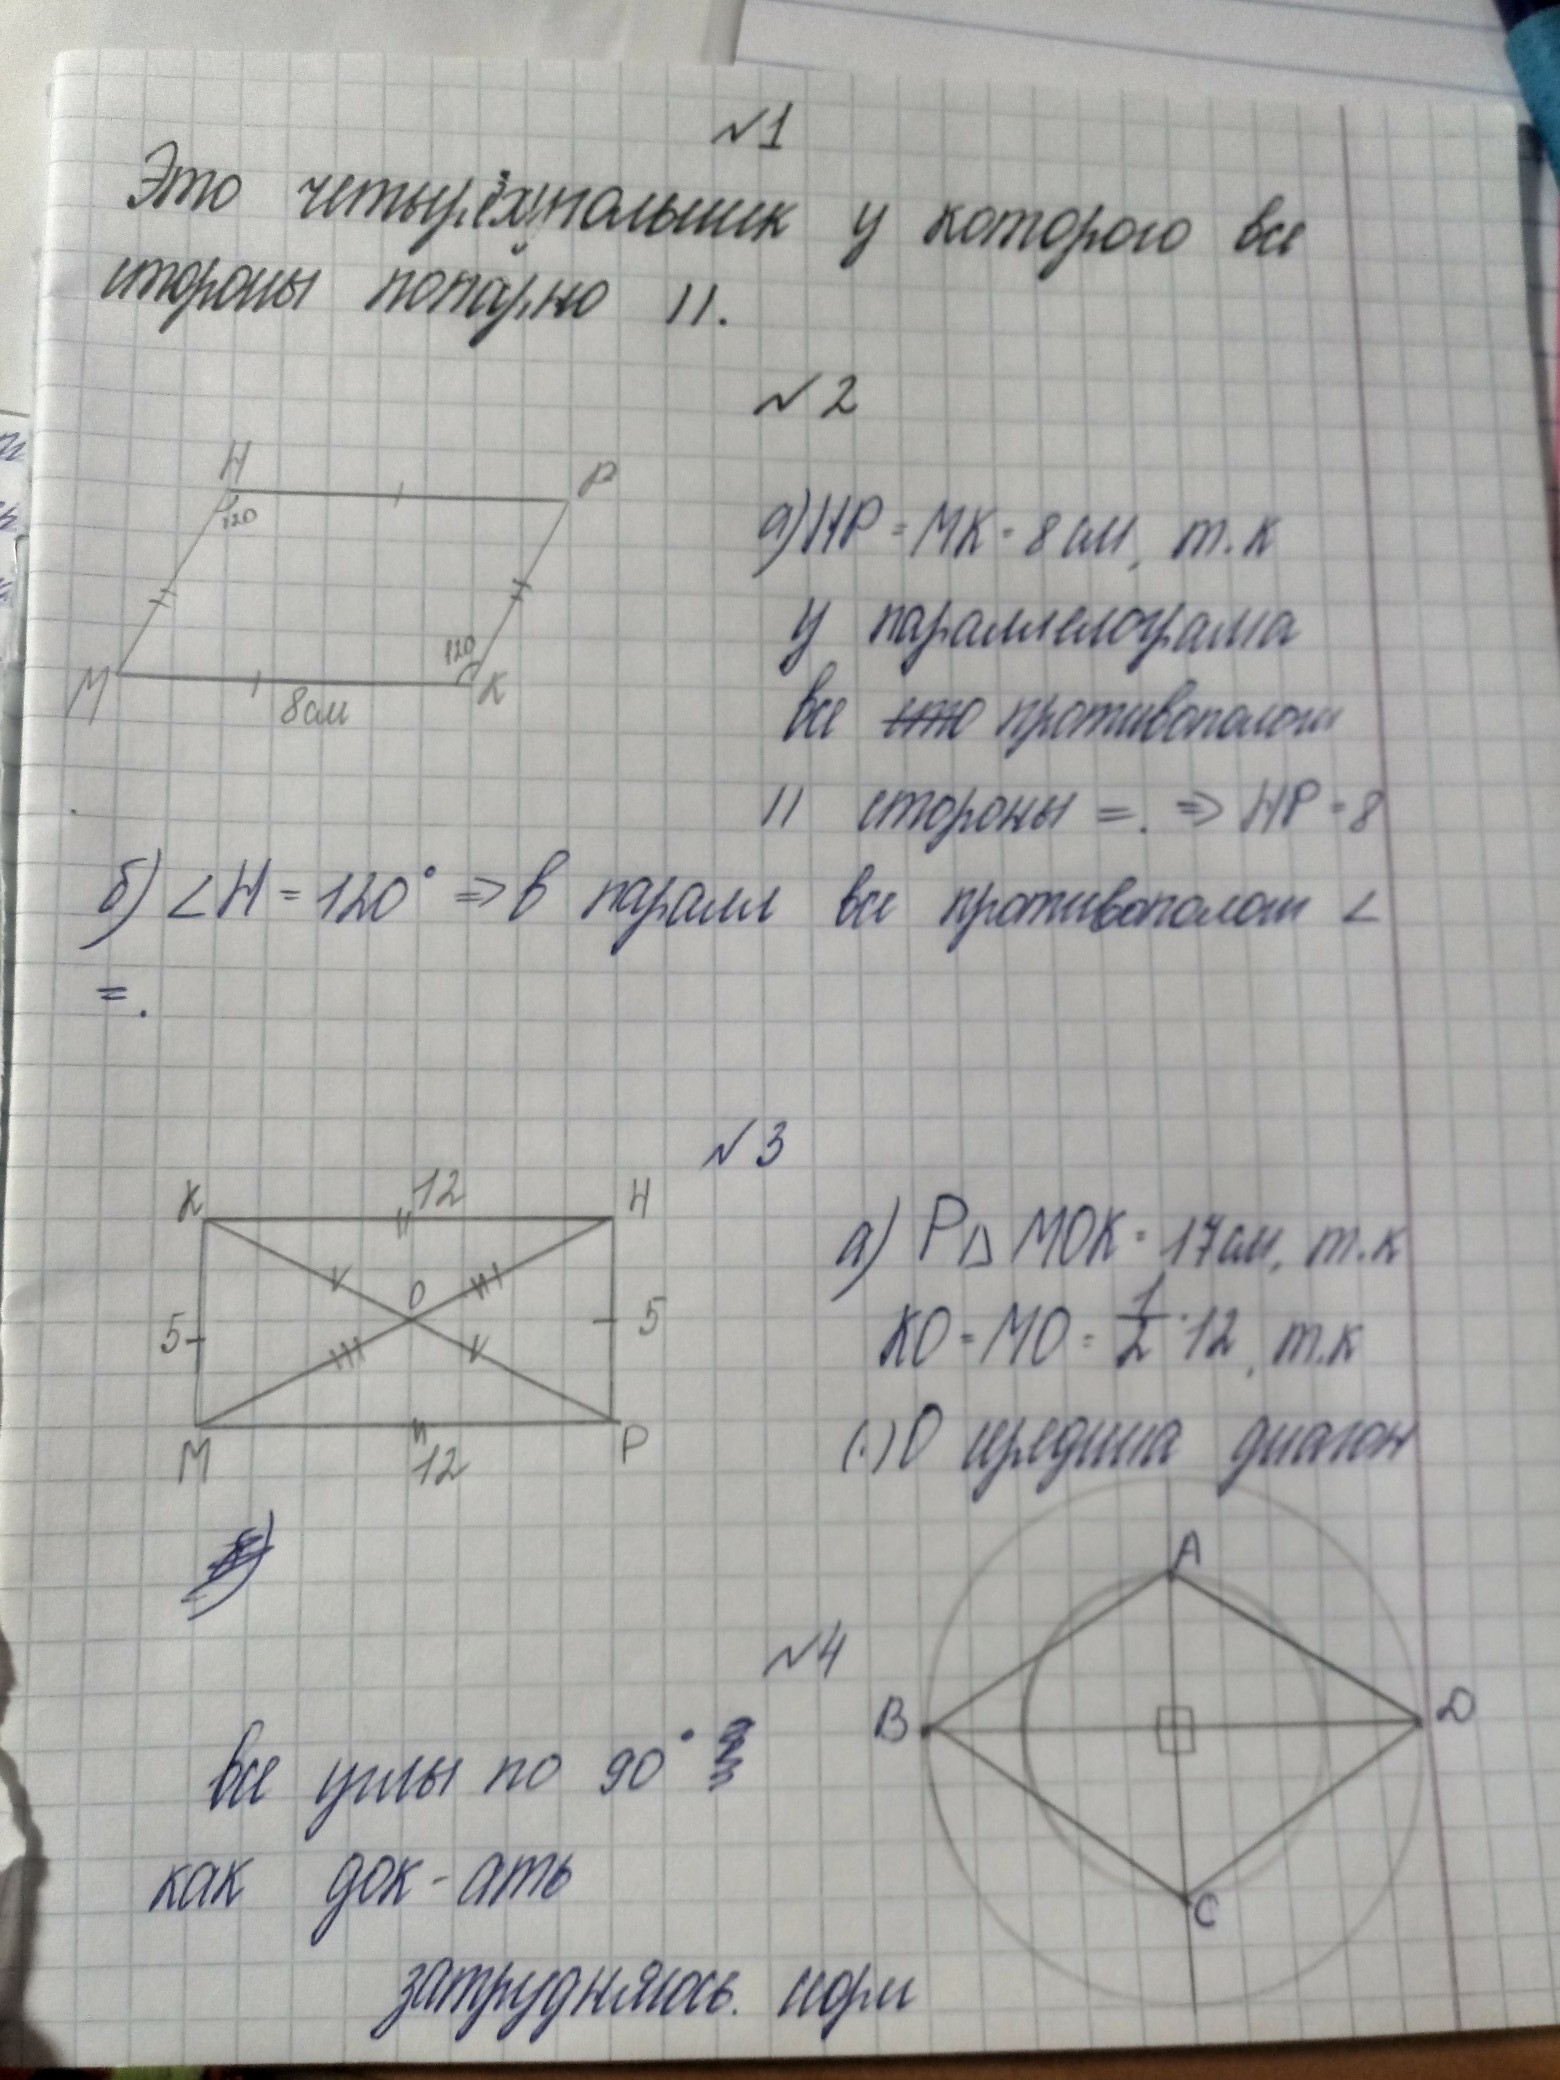 №1
Это четырёхугольник у которого все
стороны попарно ||.
№2
Н Р
120
120
М К
8см
а) НР = МК = 8 см, т.к
у параллелограма
все противополож
|| стороны =. => НР = 8
б) ∠Н = 120° => в паралл все противополож ∠
=.
№3
К 12 Н
О
5 5
М Р
12
а) Р△ МОК = 17 см, т.к
КО = МО = 1/2 · 12, т.к
(·) О середина диагон
№4
A
B D
C
все углы по 90°
как док-ать
затрудняюсь. сорм